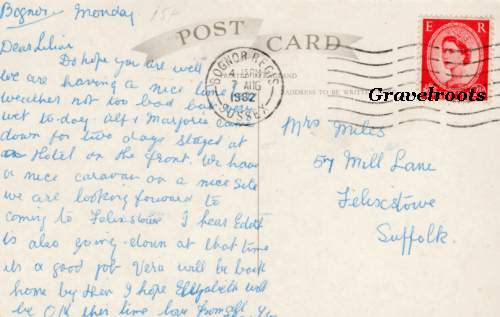 Bognor Monday
15P
Dear Lilian
Do hope you are well
we are having a nice time
weather not too bad but
wet to-day Alf & Marjorie came
down for two days stayed at
Hotel on the front. We have
a nice caravan on a nice site
we are looking forward to
coming to Felixstowe I hear
is also going down at that time
its a good job Vera will be back
home by then I hope Elizabeth will
be O.K this time love from
POST CARD
BOGNOR REGIS
7 AUG
1962
SUSSEX
ADDRESS TO BE WRITTEN
E R
Gravelroots
Mrs Miles
57 Mill Lane
Felixstowe
Suffolk.